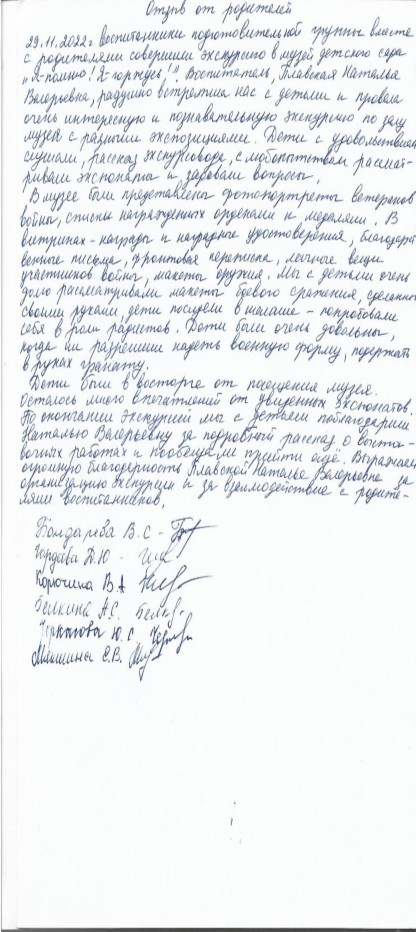 Отзыв от родителей
29.11.2022г Воспитанники подготовительной группы вместе
с родителями совершили экскурсию в музей детского сада
"Я-помню! Я-горжусь!". Воспитатель, Плавская Наталья
Валерьевна, радушно встретила нас с детьми и провела
очень интересную и познавательную экскурсию по залу
музея с разными экспозициями. Дети с удовольствием
слушали, рассказ экскурсовода, с любопытством рассмат-
ривали экспонаты и задавали вопросы.
В музее были представлены фотопортреты ветеранов
войны, списки награжденных орденами и медалями. В
витринах - награды и наградные удостоверения, благодарст
венные письма, фронтовая переписка, личные вещи
участников войны, макеты оружия. Мы с детьми очень
долго рассматривали макеты боевого сражения, сделанные
своими руками, дети посидели в шалаше - попробовали
себя в роли радистов. Дети были очень довольны,
когда им разрешили надеть военную форму, подержать
в руках гранату.
Дети были в восторге от посещения музея.
Осталось много впечатлений от увиденных экспонатов.
По окончании экскурсии мы с детьми поблагодарили
Наталью Валерьевну за подробный рассказ о выста-
вочных работах и пообещали прийти ещё. Выражаем
огромную благодарность Плавской Наталье Валерьевне за
организацию экскурсии и за взаимодействие с родите-
лями воспитанников.
Бондарева В.С -
Гордова Д.Ю -
Корючина В.А
Белкина А.С. Белк
Ю.С.
Мякшина Е.В.